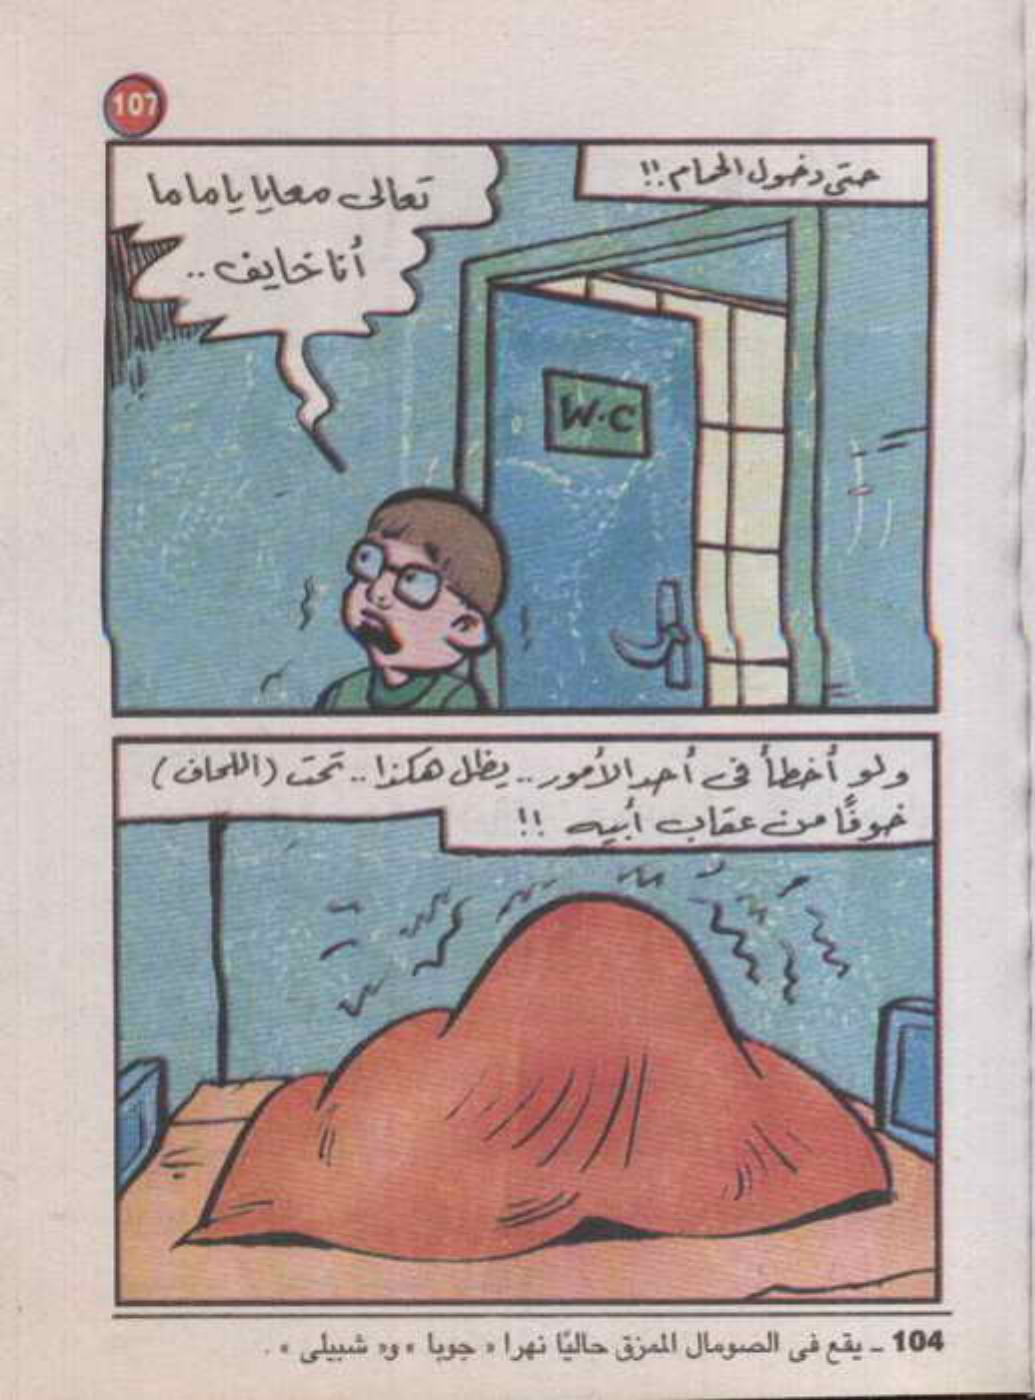 107
حتى دخول الحمام!!
تعالى معايا ياماما
أنا خايف..
W.C
ولو أخطأ فى أحد الأمور.. يظل هكذا.. تحت (اللحاف)
خوفًا من عقاب أبيه !!
104 ـ يقع فى الصومال الممزق حاليًا نهرا « جوبا » و« شبيلى » .